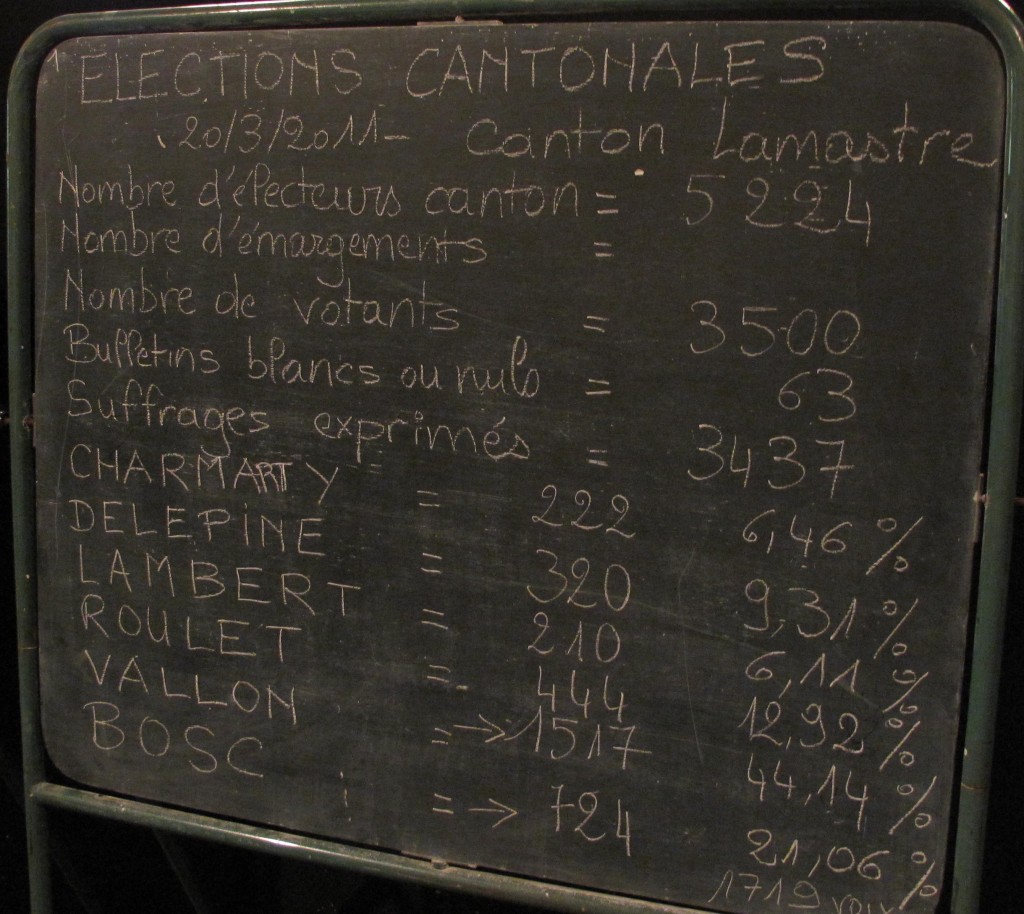 ELECTIONS CANTONALES
20/3/2011 - Canton Lamastre
Nombre d'électeurs canton = 5224
Nombre d'émargements =
Nombre de votants = 3500
Bulletins blancs ou nuls = 63
Suffrages exprimés = 3437
CHARMATTY = 222 6,46 %
DELEPINE = 320 9,31 %
LAMBERT = 210 6,11 %
ROULET = 444 12,92 %
VALLON => 1517 44,14 %
BOSC => 724 21,06 %
1719 voix